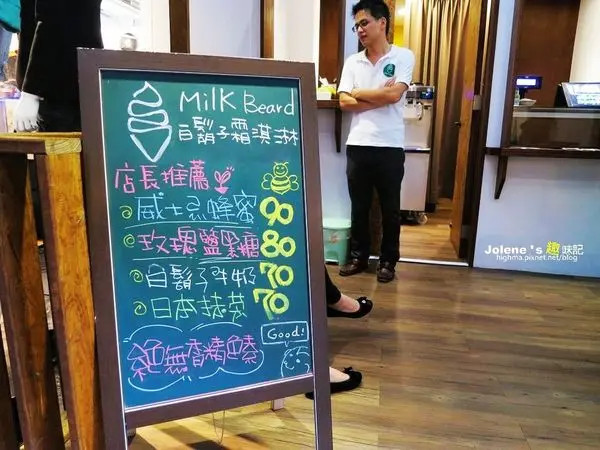 Milk Beard
白鬍子霜淇淋
店長推薦
威士忌蜂蜜 90
玫瑰鹽黑糖 80
白鬍子牛奶 70
日本抹茶 70
Good!
絕無香精色素
Jolene's 趣味記
highma.pixnet.net/blog